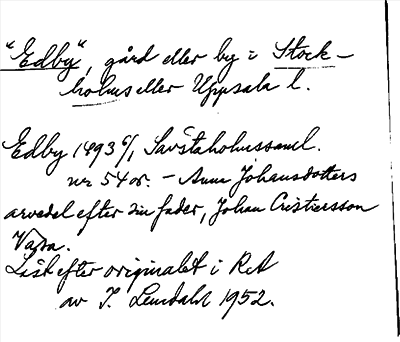 "Edby", gård eller by i Stock-
holms eller Uppsala l.
Edby 1493 6/1, Sävstaholmssaml.
nr 54 or. – Anna Johansdotters
arvedel efter sin fader, Johan Cristiersson
Vasa.
Läst efter originalet i RA
av I. Lemdahl 1952.